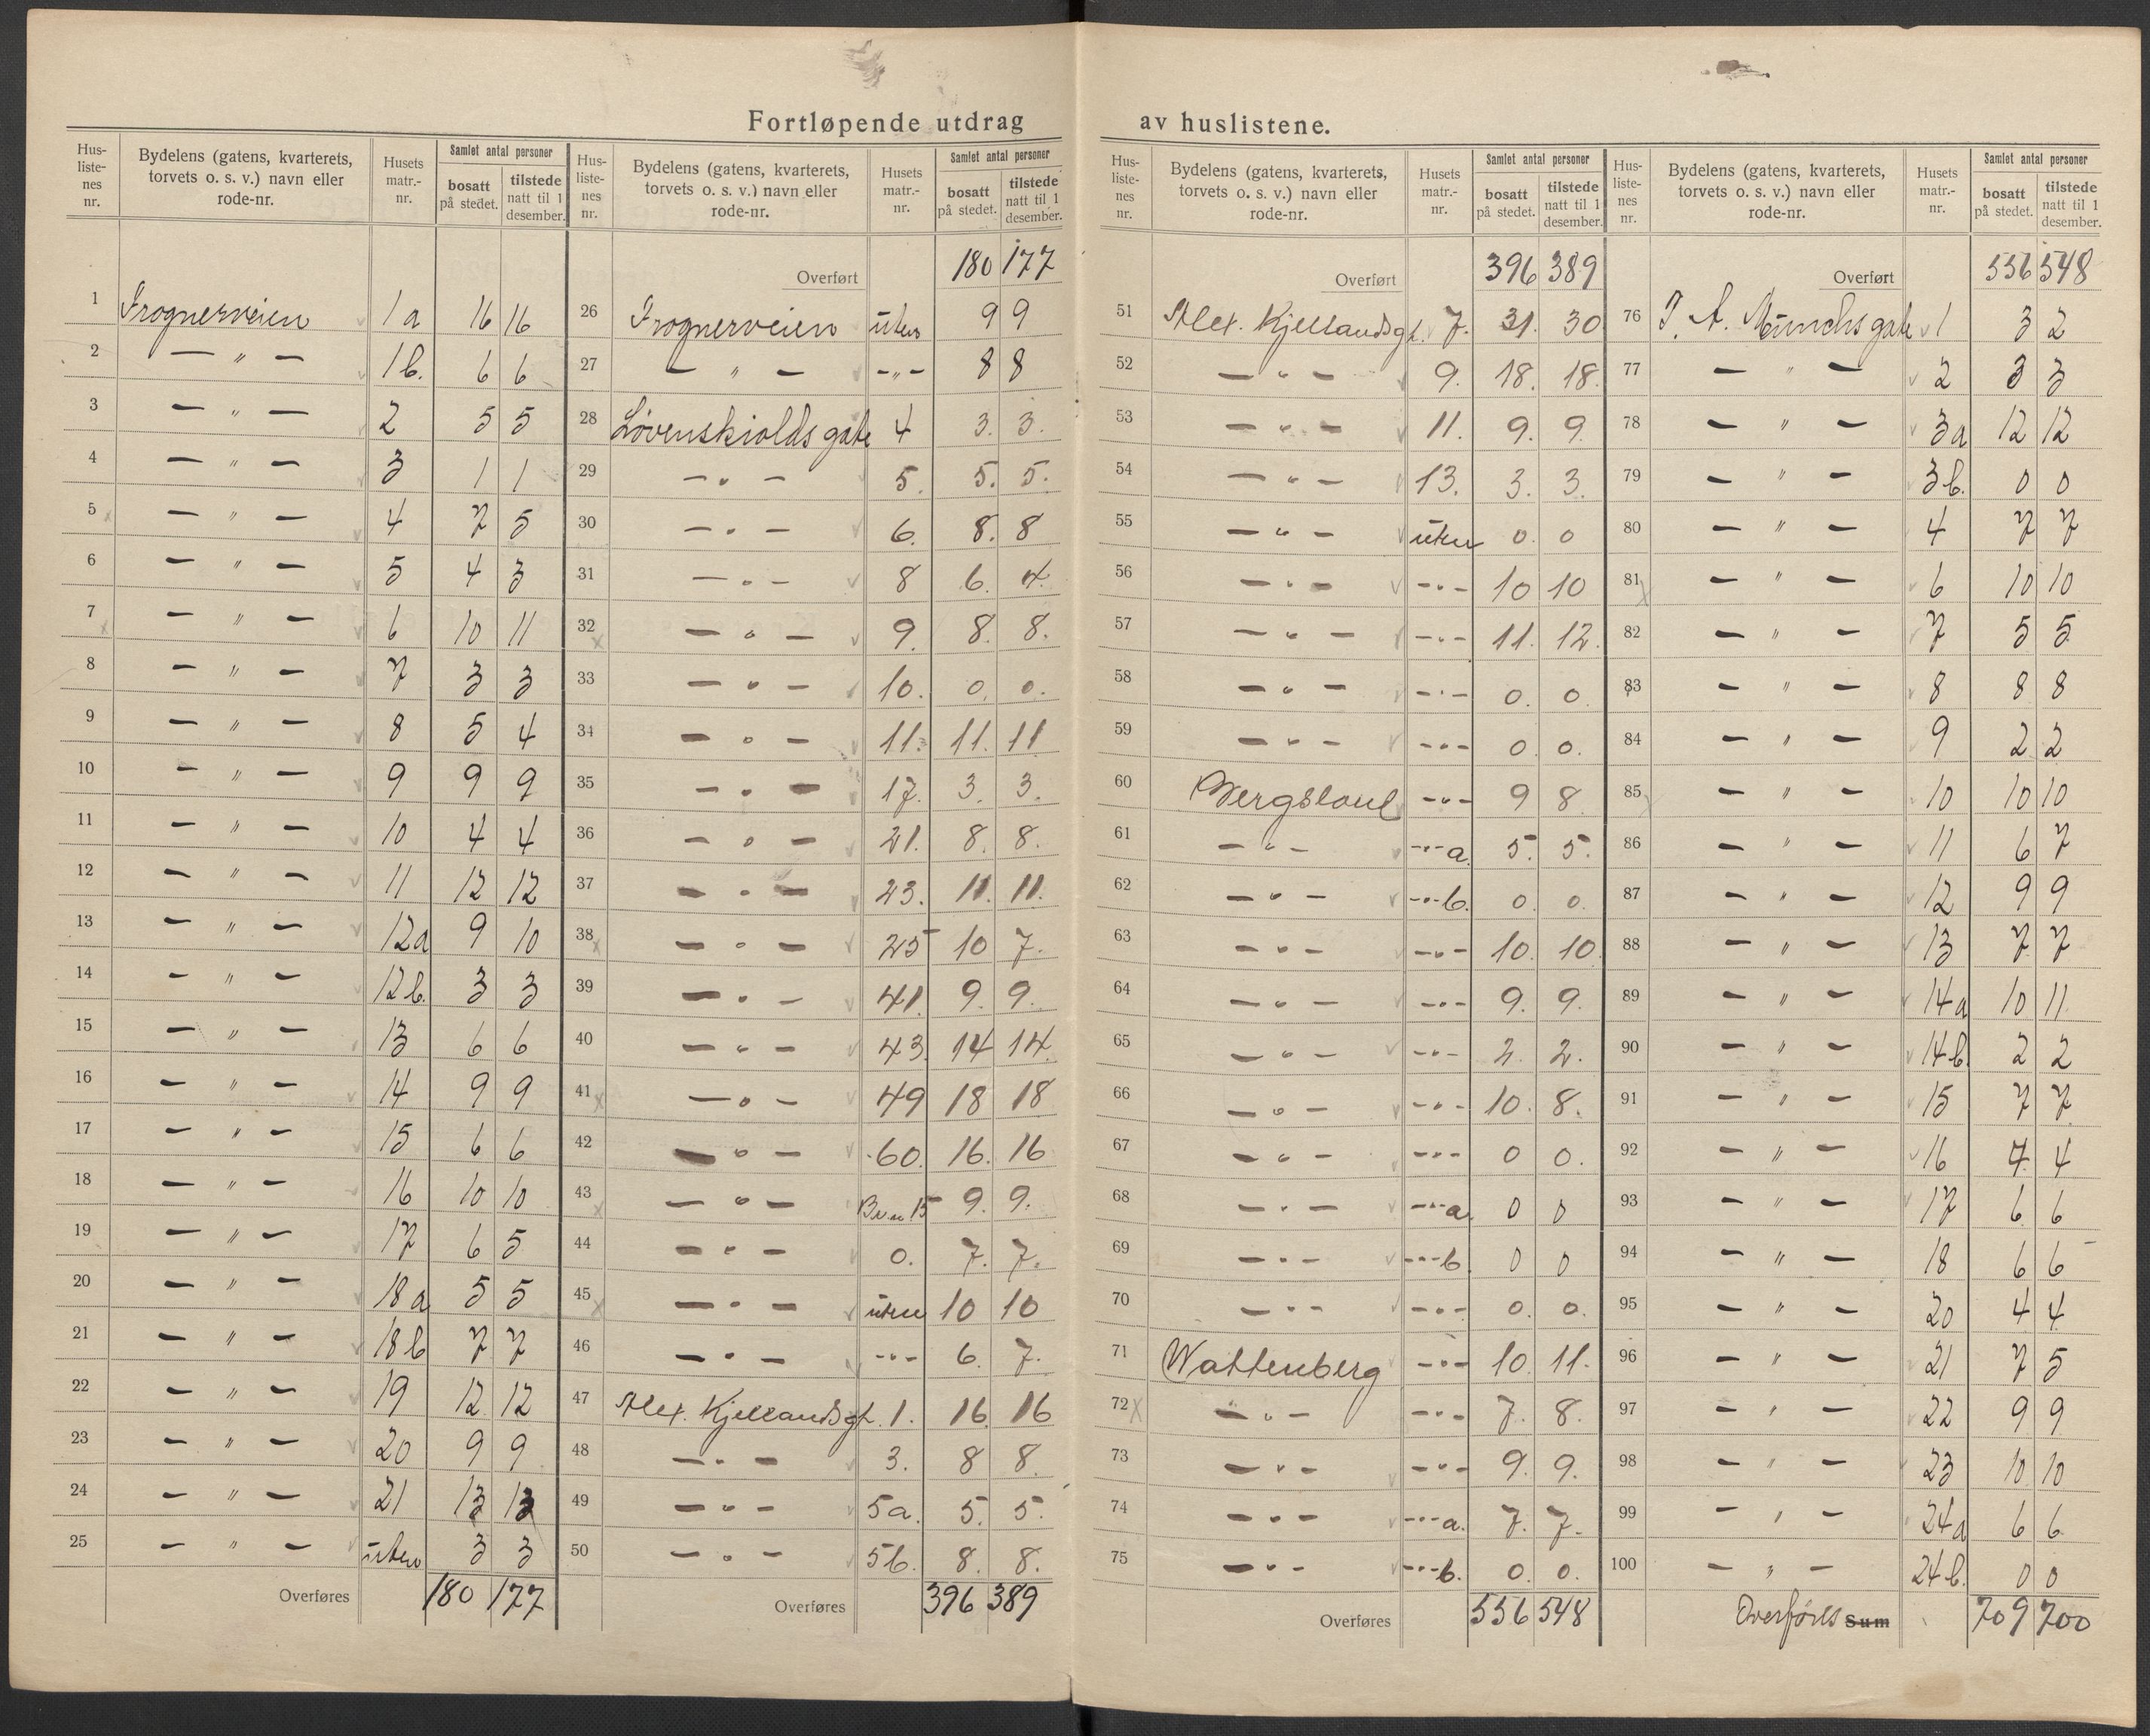 Fortløpende utdrag av huslistene.
Hus-listenes nr. Bydelens (gatens, kvarterets, torvets o. s. v.) navn eller rode-nr. Husets matr.-nr. Samlet antal personer bosatt på stedet. tilstede natt til 1 desember.
1 Frognerveien 1a 16 16
2 — " — 1b. 6 6
3 — " — 2 5 5
4 — " — 3 1 1
5 — " — 4 7 5
6 — " — 5 4 3
7 — " — 6 10 11
8 — " — 7 3 3
9 — " — 8 5 4
10 — " — 9 9 9
11 — " — 10 4 4
12 — " — 11 12 12
13 — " — 12a 9 10
14 — " — 12b. 3 3
15 — " — 13 6 6
16 — " — 14 9 9
17 — " — 15 6 6
18 — " — 16 10 10
19 — " — 17 6 5
20 — " — 18a 5 5
21 — " — 18b 7 7
22 — " — 19 12 12
23 — " — 20 9 9
24 — " — 21 13 13
25 — " — uten 3 3
Overføres 180 177
Hus-listenes nr. Bydelens (gatens, kvarterets, torvets o. s. v.) navn eller rode-nr. Husets matr.-nr. Samlet antal personer bosatt på stedet. tilstede natt til 1 desember.
Overført 180 177
26 Frognerveien uten 9 9
27 — " — -"- 8 8
28 Løvenskiolds gate 4 3. 3.
29 — " — 5. 5. 5.
30 — " — 6. 8. 8
31 — " — 8 6. 4.
32 — " — 9. 8. 8.
33 — " — 10. 0. 0.
34 — " — 11. 11. 11
35 — " — 17. 3. 3.
36 — " — 21. 8. 8.
37 — " — 23. 11. 11.
38 — " — 25 10 7.
39 — " — 41. 9. 9.
40 — " — 43. 14 14.
41 — " — 49 18 18
42 — " — 60. 16. 16
43 — " — 15 9. 9.
44 — " — 0. 7. 7.
45 — " — uten 10 10
46 — " — -"- 6. 7.
47 Alex. Kjellandsgt. 1. 16. 16
48 — " — 3. 8 8.
49 — " — 5a. 5. 5.
50 — " — 5b. 8. 8.
Overføres 396 389
Hus-listenes nr. Bydelens (gatens, kvarterets, torvets o. s. v.) navn eller rode-nr. Husets matr.-nr. Samlet antal personer bosatt på stedet. tilstede natt til 1 desember.
Overført 396 389
51 Alex. Kjellandsgt. 7. 31. 30
52 — " — 9. 18. 18.
53 — " — 11. 9. 9.
54 — " — 13. 3. 3.
55 — " — uten 0. 0
56 — " — -"- 10 10
57 — " — -"- 11. 12.
58 — " — -"- 0. 0.
59 — " — -"- 0. 0.
60 Bergsloul -"- 9 8.
61 — " — -"- a. 5. 5.
62 — " — -"- b. 0. 0.
63 — " — -"- 10. 10.
64 — " — -"- 9. 9.
65 — " — -"- 2. 2.
66 — " — -"- 10. 8.
67 — " — -"- 0 0.
68 — " — -"- a. 0 0
69 — " — -"- b. 0 0
70 — " — -"- 0. 0.
71 Wattenberg -"- 10. 11.
72 — " — -"- 7. 8.
73 — " — -"- 9. 9.
74 — " — -"- a. 7. 7.
75 — " — -"- b. 0. 0.
Overføres 556 548
Hus-listenes nr. Bydelens (gatens, kvarterets, torvets o. s. v.) navn eller rode-nr. Husets matr.-nr. Samlet antal personer bosatt på stedet. tilstede natt til 1 desember.
Overført 556 548
76 P. A. Munchs gate 1 3 2
77 — " — 2 3 3
78 — " — 3a 12 12
79 — " — 3b. 0 0
80 — " — 4 7 7
81 — " — 6 10 10
82 — " — 7 5 5
83 — " — 8 8 8
84 — " — 9 2 2
85 — " — 10 10 10
86 — " — 11 6 7
87 — " — 12 9 9
88 — " — 13 7 7
89 — " — 14a 10 11
90 — " — 14b. 2 2
91 — " — 15 7 7
92 — " — 16 4 4
93 — " — 17 6 6
94 — " — 18 6 6
95 — " — 20 4 4
96 — " — 21 7 5
97 — " — 22 9 9
98 — " — 23 10 10
99 — " — 24a 6 6
100 — " — 24b. 0 0
Overføres Sum 709 700